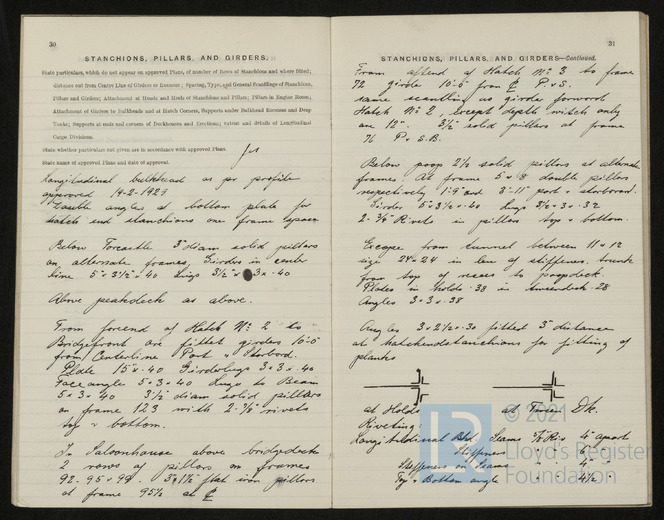 30
STANCHIONS, PILLARS, AND GIRDERS.
State particulars, which do not appear on approved Plans, of number of Rows of Stanchions and where fitted;
distance out from Centre Line of Girders or Runners; Spacing, Type, and General Scantlings of Stanchions,
Pillars and Girders; Attachment at Heads and Heels of Stanchions and Pillars; Pillars in Engine Room;
Attachment of Girders to Bulkheads and at Hatch Corners, Supports under Bulkhead Recesses and Deep
Tanks; Supports at ends and corners of Deckhouses and Erections; extent and details of Longitudinal
Cargo Divisions.
State whether particulars not given are in accordance with approved Plans.
State name of approved Plans and date of approval.
Yes
Longitudinal bulkhead as per profile
approved 14-2-1927
Double angles at bottom plate for
hatch end stanchions one frame space
Below Forecastle 3" diam solid pillars
on alternate frames, Girders in center
line 5 × 3½ × .40 lugs 3½ × 3 × .40
Above peakdeck as above.
From foreend of Hatch No 2 to
Bridgefront are fitted girders 10'-0"
from Centerline Port & Starbord.
Plate 15" × .40 Girderlugs 3 × 3 × .40
Face angle 5 × 3 × 40 lugs to Beam
5 × 3 × 40 3½ diam solid pillars
on frame 123 with 2-⅞ rivets
top & bottom.
In Saloonhouse above bridgedeck
2 rows of pillars on frames
92-95 & 99. 3 × 1½" flat iron pillars
at frame 95½ at ℄
31
STANCHIONS, PILLARS, AND GIRDERS—Continued.
From aftend of Hatch No 3 to frame
72 girder 10'-0" from ℄ P. & S.
same scantling as girder forward
Hatch No 2, except depth which only
are 12". 3½" solid pillars at frame
76 P. & S.B.
Below poop 2½ solid pillars at alternate
frames. At frame 5 & 8 double pillars
respectively 1'-9" and 3'-11" port & starbord.
Girder 5 × 3½ × .40 lugs 3½ × 3 × .32
2-¾ Rivets in pillars top & bottom.
Escape from tunnel between 11 & 12
size 24 × 24 in lieu of stiffeners. trunk
from top of recess to poopdeck.
Plates in holds .33 in tweendeck .28
Angles 3 × 3 × .38
Angles 3 × 2½ × .30 fitted 3" distance
at hatchendstanchions for fitting of
planks
at Holds
at Tween Dk.
Riveting:
Longitudinal Bhd. Seams ⅞ Ris 4" apart
Stiffeners " " 6" "
Stiffeners on Seams " " 4" "
Top & Bottom angle " " 4½" "
© 2021
LR
Lloyd's Register
Foundation